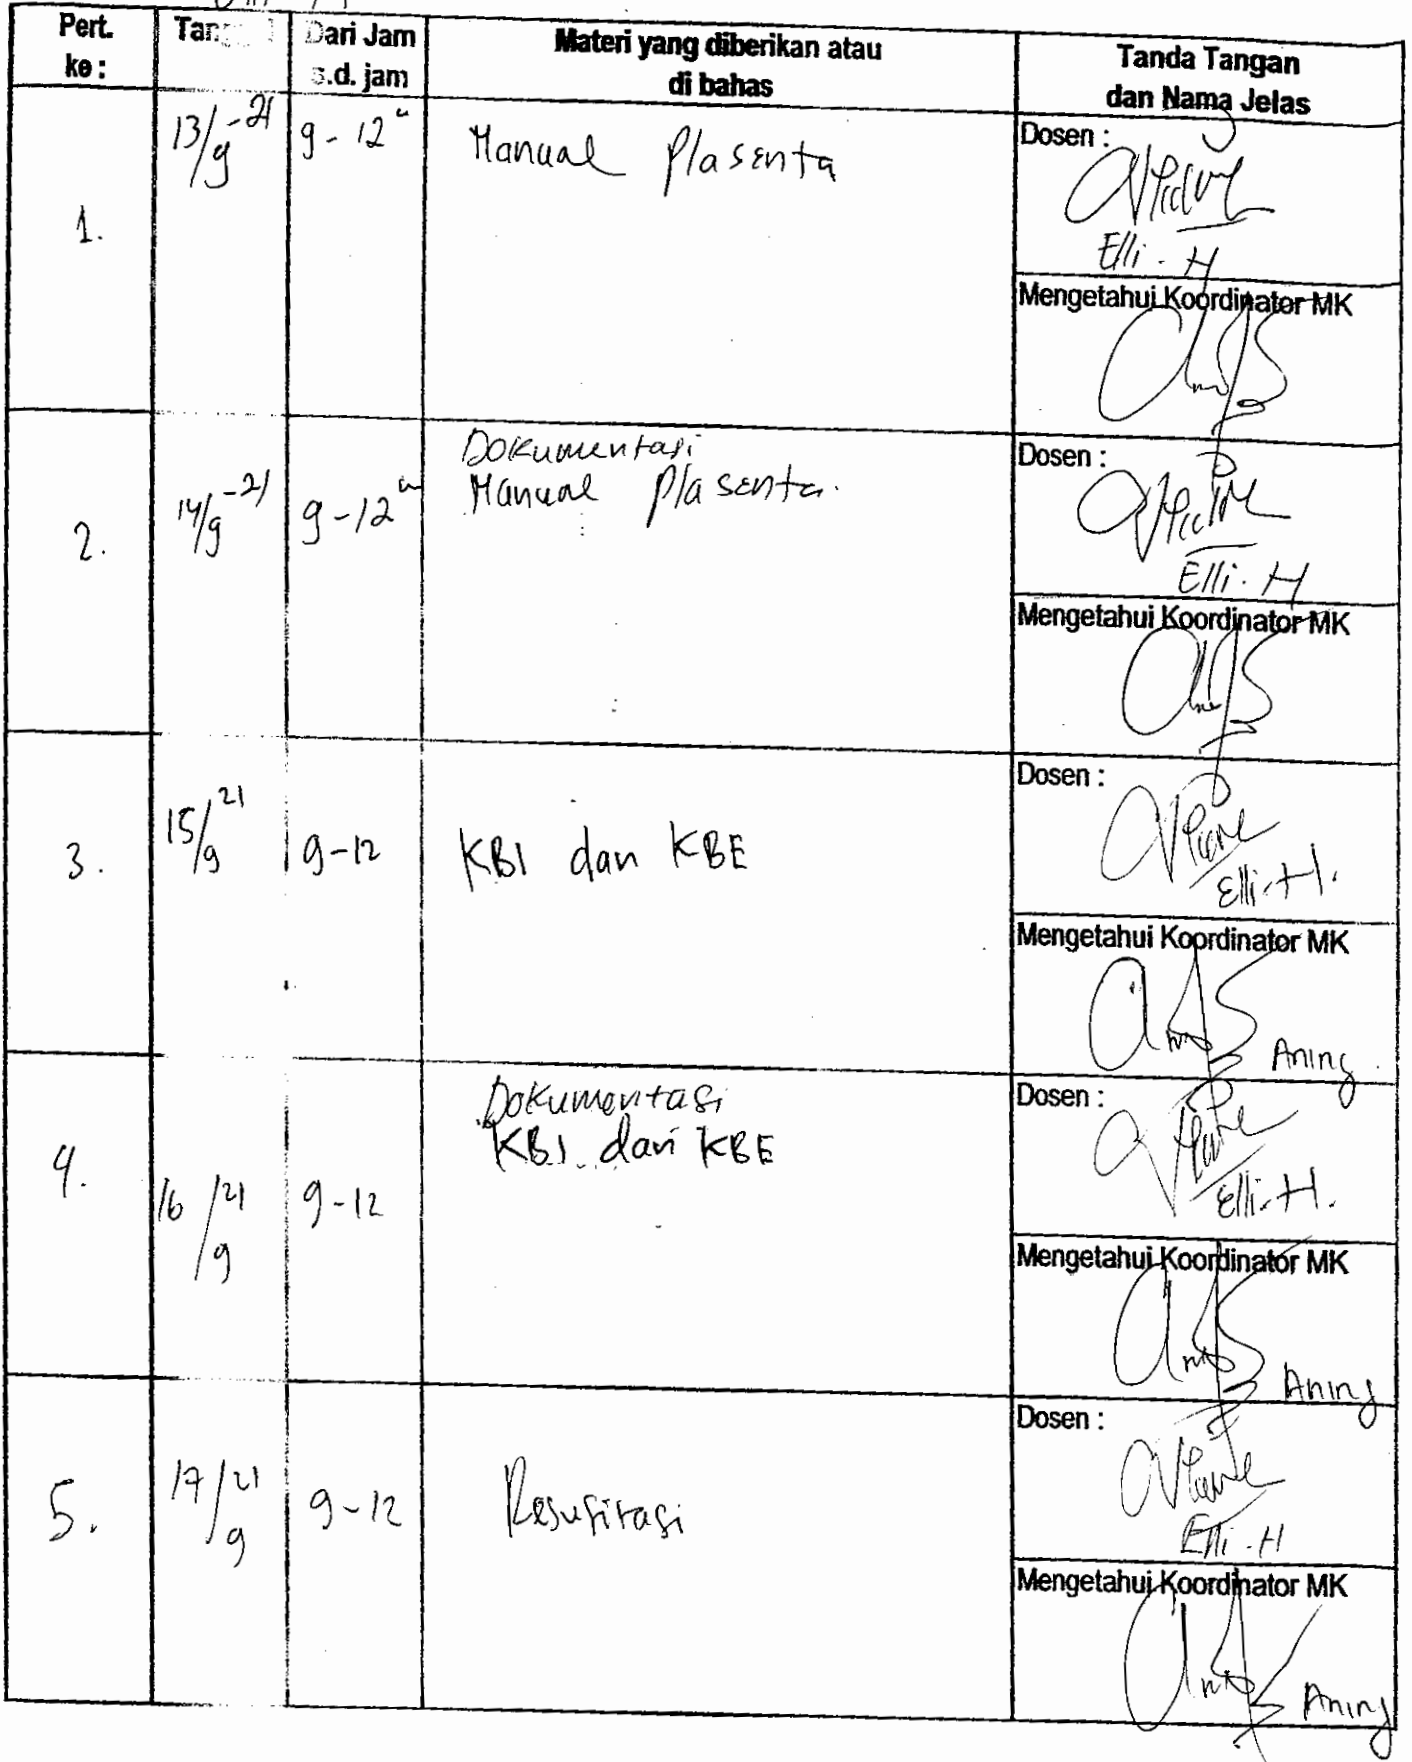 Pert. ke :
Dari Jam s.d. jam
Materi yang diberikan atau di bahas
Tanda Tangan dan Nama Jelas
1.
13/9-21
9 - 12
Manual Plasenta
Dosen :
Elli - H
Mengetahui Koordinator MK
2.
14/9-21
9-12
Dokumentasi
Manual Plasenta.
Dosen :
Elli - H
Mengetahui Koordinator MK
3.
15/9 21
9-12
KBI dan KBE
Dosen :
Elli-H.
Mengetahui Koordinator MK
Aning
4.
16/9 21
9-12
Dokumentasi
KBI dan KBE
Dosen :
Elli-H.
Mengetahui Koordinator MK
Aning
5.
17/9 21
9-12
Resusitasi
Dosen :
Elli - H
Mengetahui Koordinator MK
Aning